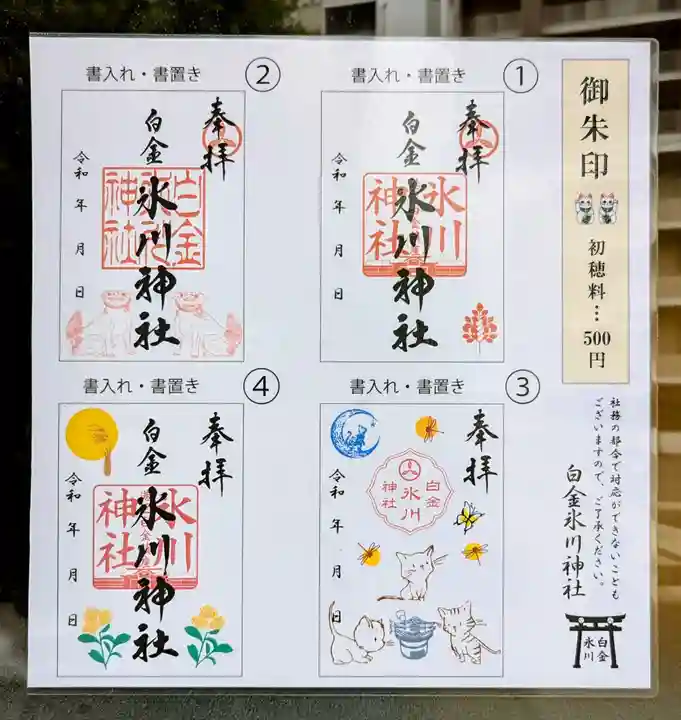 御朱印
初穂料…500円
社務の都合で対応ができないことも
ございますので、ご了承ください。
白金氷川神社
白金
氷川
書入れ・書置き ①
奉拝
白金
氷川神社
氷川
神社
令和 年 月 日
書入れ・書置き ②
奉拝
白金
氷川神社
白金
神社
令和 年 月 日
③
奉拝
白金
氷川
神社
令和 年 月 日
書入れ・書置き
書入れ・書置き ④
奉拝
白金
氷川神社
氷川
神社
令和 年 月 日